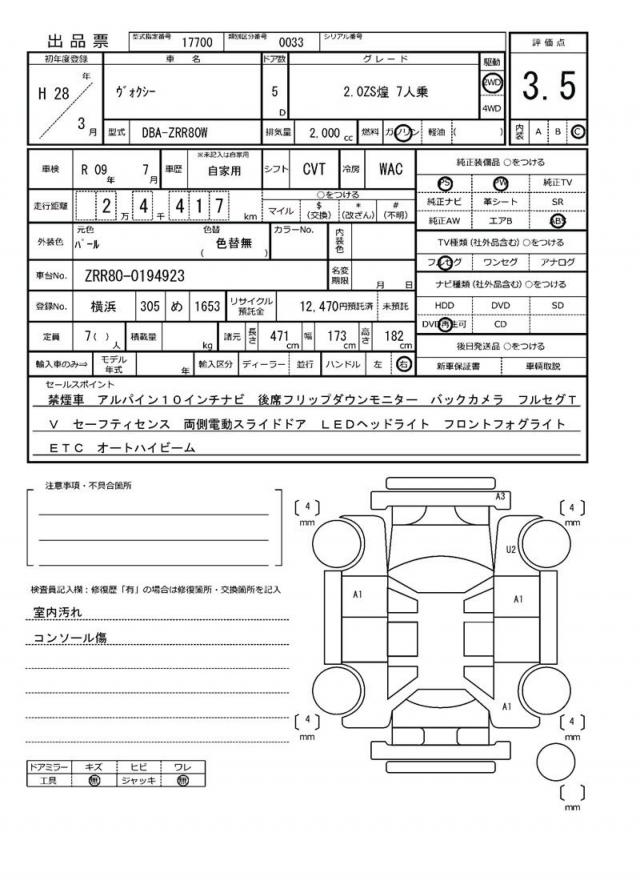 出品票 型式指定番号 17700 類別区分番号 0033 シリアル番号
初年度登録 車名 ドア数 グレード 駆動 評価点
H 28 年 3 月 ヴォクシー 5 D 2.0ZS煌 7人乗 2WD 4WD 3.5
型式 DBA-ZRR80W 排気量 2,000 cc 燃料 ガソリン 軽油 ( ) 内装 A B C
車検 R 09 年 7 月 車歴 ※未記入は自家用 自家用 シフト CVT 冷房 WAC
純正装備品 ○をつける
PS PW 純正TV
純正ナビ 革シート SR
純正AW エアB ABS
走行距離 2 万 4 千 4 1 7 km ○をつける
マイル $ (交換) * (改ざん) # (不明)
外装色 元色 パール 色替 ( 色替無 ) カラーNo. 内装色
TV種類 (社外品含む) ○をつける
フルセグ ワンセグ アナログ
車台No. ZRR80-0194923 名変期限 月 日
ナビ種類 (社外品含む) ○をつける
HDD DVD SD
DVD再生可 CD
登録No. 横浜 305 め 1653 リサイクル預託金 12,470円預託済 未預託
定員 7( ) 人 積載量 kg 諸元 長さ 471 cm 幅 173 cm 高さ 182 cm
後日発送品 ○をつける
新車保証書 車輌取説
輸入車のみ⇒ モデル年式 年 輸入区分 ディーラー 並行 ハンドル 左 右
セールスポイント
禁煙車 アルパイン10インチナビ 後席フリップダウンモニター バックカメラ フルセグT
V セーフティセンス 両側電動スライドドア LEDヘッドライト フロントフォグライト
ETC オートハイビーム
注意事項・不具合箇所
検査員記入欄:修復歴「有」の場合は修復箇所・交換箇所を記入
室内汚れ
コンソール傷
ドアミラー キズ ヒビ ワレ
工具 無 ジャッキ 無
A3
[ 4 ] mm
[ 4 ] mm
U2
A1
A1
A1
[ 4 ] mm
[ 4 ] mm
[ ] mm